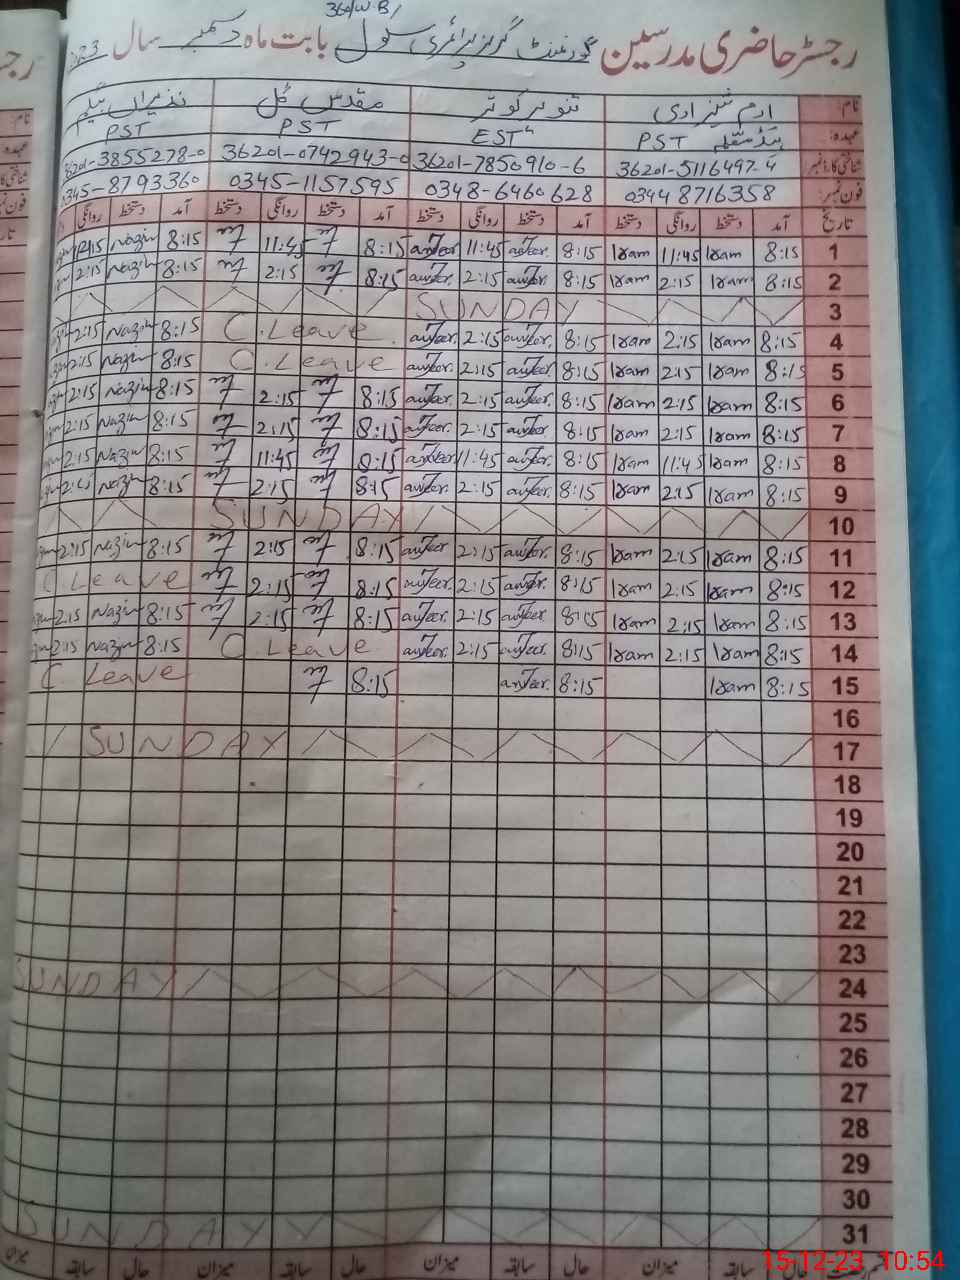 360/W.B/
رجسٹر حاضری مدرسین گورنمنٹ گرلز پرائمری سکول بابت ماہ دسمبر سال 2023
نام: ارم شہزادی تنویر کوثر مقدس گل نذیراں بیگم
عہدہ: ہیڈ معلمہ PST EST PST PST
شناختی کارڈ نمبر 36201-5116497-4 36201-7850910-6 36201-0742943-0 36201-3855278-0
فون نمبر: 03448716358 0348-6460628 0345-1157595 0345-8793360
تاریخ آمد دستخط روانگی دستخط آمد دستخط روانگی دستخط آمد دستخط روانگی دستخط آمد دستخط روانگی
1 8:15 Iram 11:45 Iram 8:15 11:45 8:15 11:45 8:15
2 8:15 Iram 2:15 Iram 8:15 2:15 8:15 2:15 8:15 2:15
3 SUNDAY
4 8:15 Iram 2:15 Iram 8:15 2:15 C.Leave 8:15 2:15
5 8:15 Iram 2:15 Iram 8:15 2:15 C.Leave 8:15 2:15
6 8:15 Iram 2:15 Iram 8:15 2:15 8:15 2:15 8:15 2:15
7 8:15 Iram 2:15 Iram 8:15 2:15 8:15 2:15 8:15 2:15
8 8:15 Iram 11:45 Iram 8:15 11:45 8:15 11:45 8:15 2:15
9 8:15 Iram 2:15 Iram 8:15 2:15 8:15 2:15 8:15 2:15
10 SUNDAY
11 8:15 Iram 2:15 Iram 8:15 2:15 8:15 2:15 8:15 2:15
12 8:15 Iram 2:15 Iram 8:15 2:15 8:15 2:15 C.Leave
13 8:15 Iram 2:15 Iram 8:15 2:15 8:15 2:15 8:15 2:15
14 8:15 Iram 2:15 Iram 8:15 2:15 C.Leave 8:15 2:15
15 8:15 Iram 8:15 8:15 C Leave
16
17 SUNDAY
18
19
20
21
22
23
24 SUNDAY
25
26
27
28
29
30
31 SUNDAY
حال سابقہ میزان حال سابقہ میزان حال سابقہ میزان
15-12-23 10:54